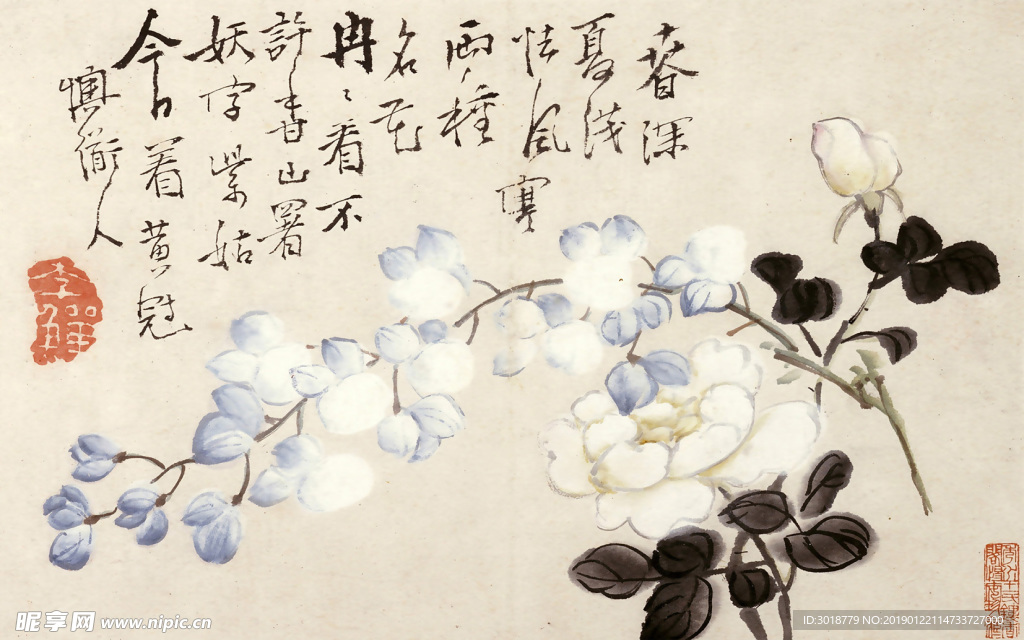 春深
夏浅
怯風寒
兩種
名花
冉〻看不
許山署
妖字紫姑
今日着黄冠
懊衜人
李鱓
昵享网 www.nipic.cn
ID:3018779 NO:20190122114733727000